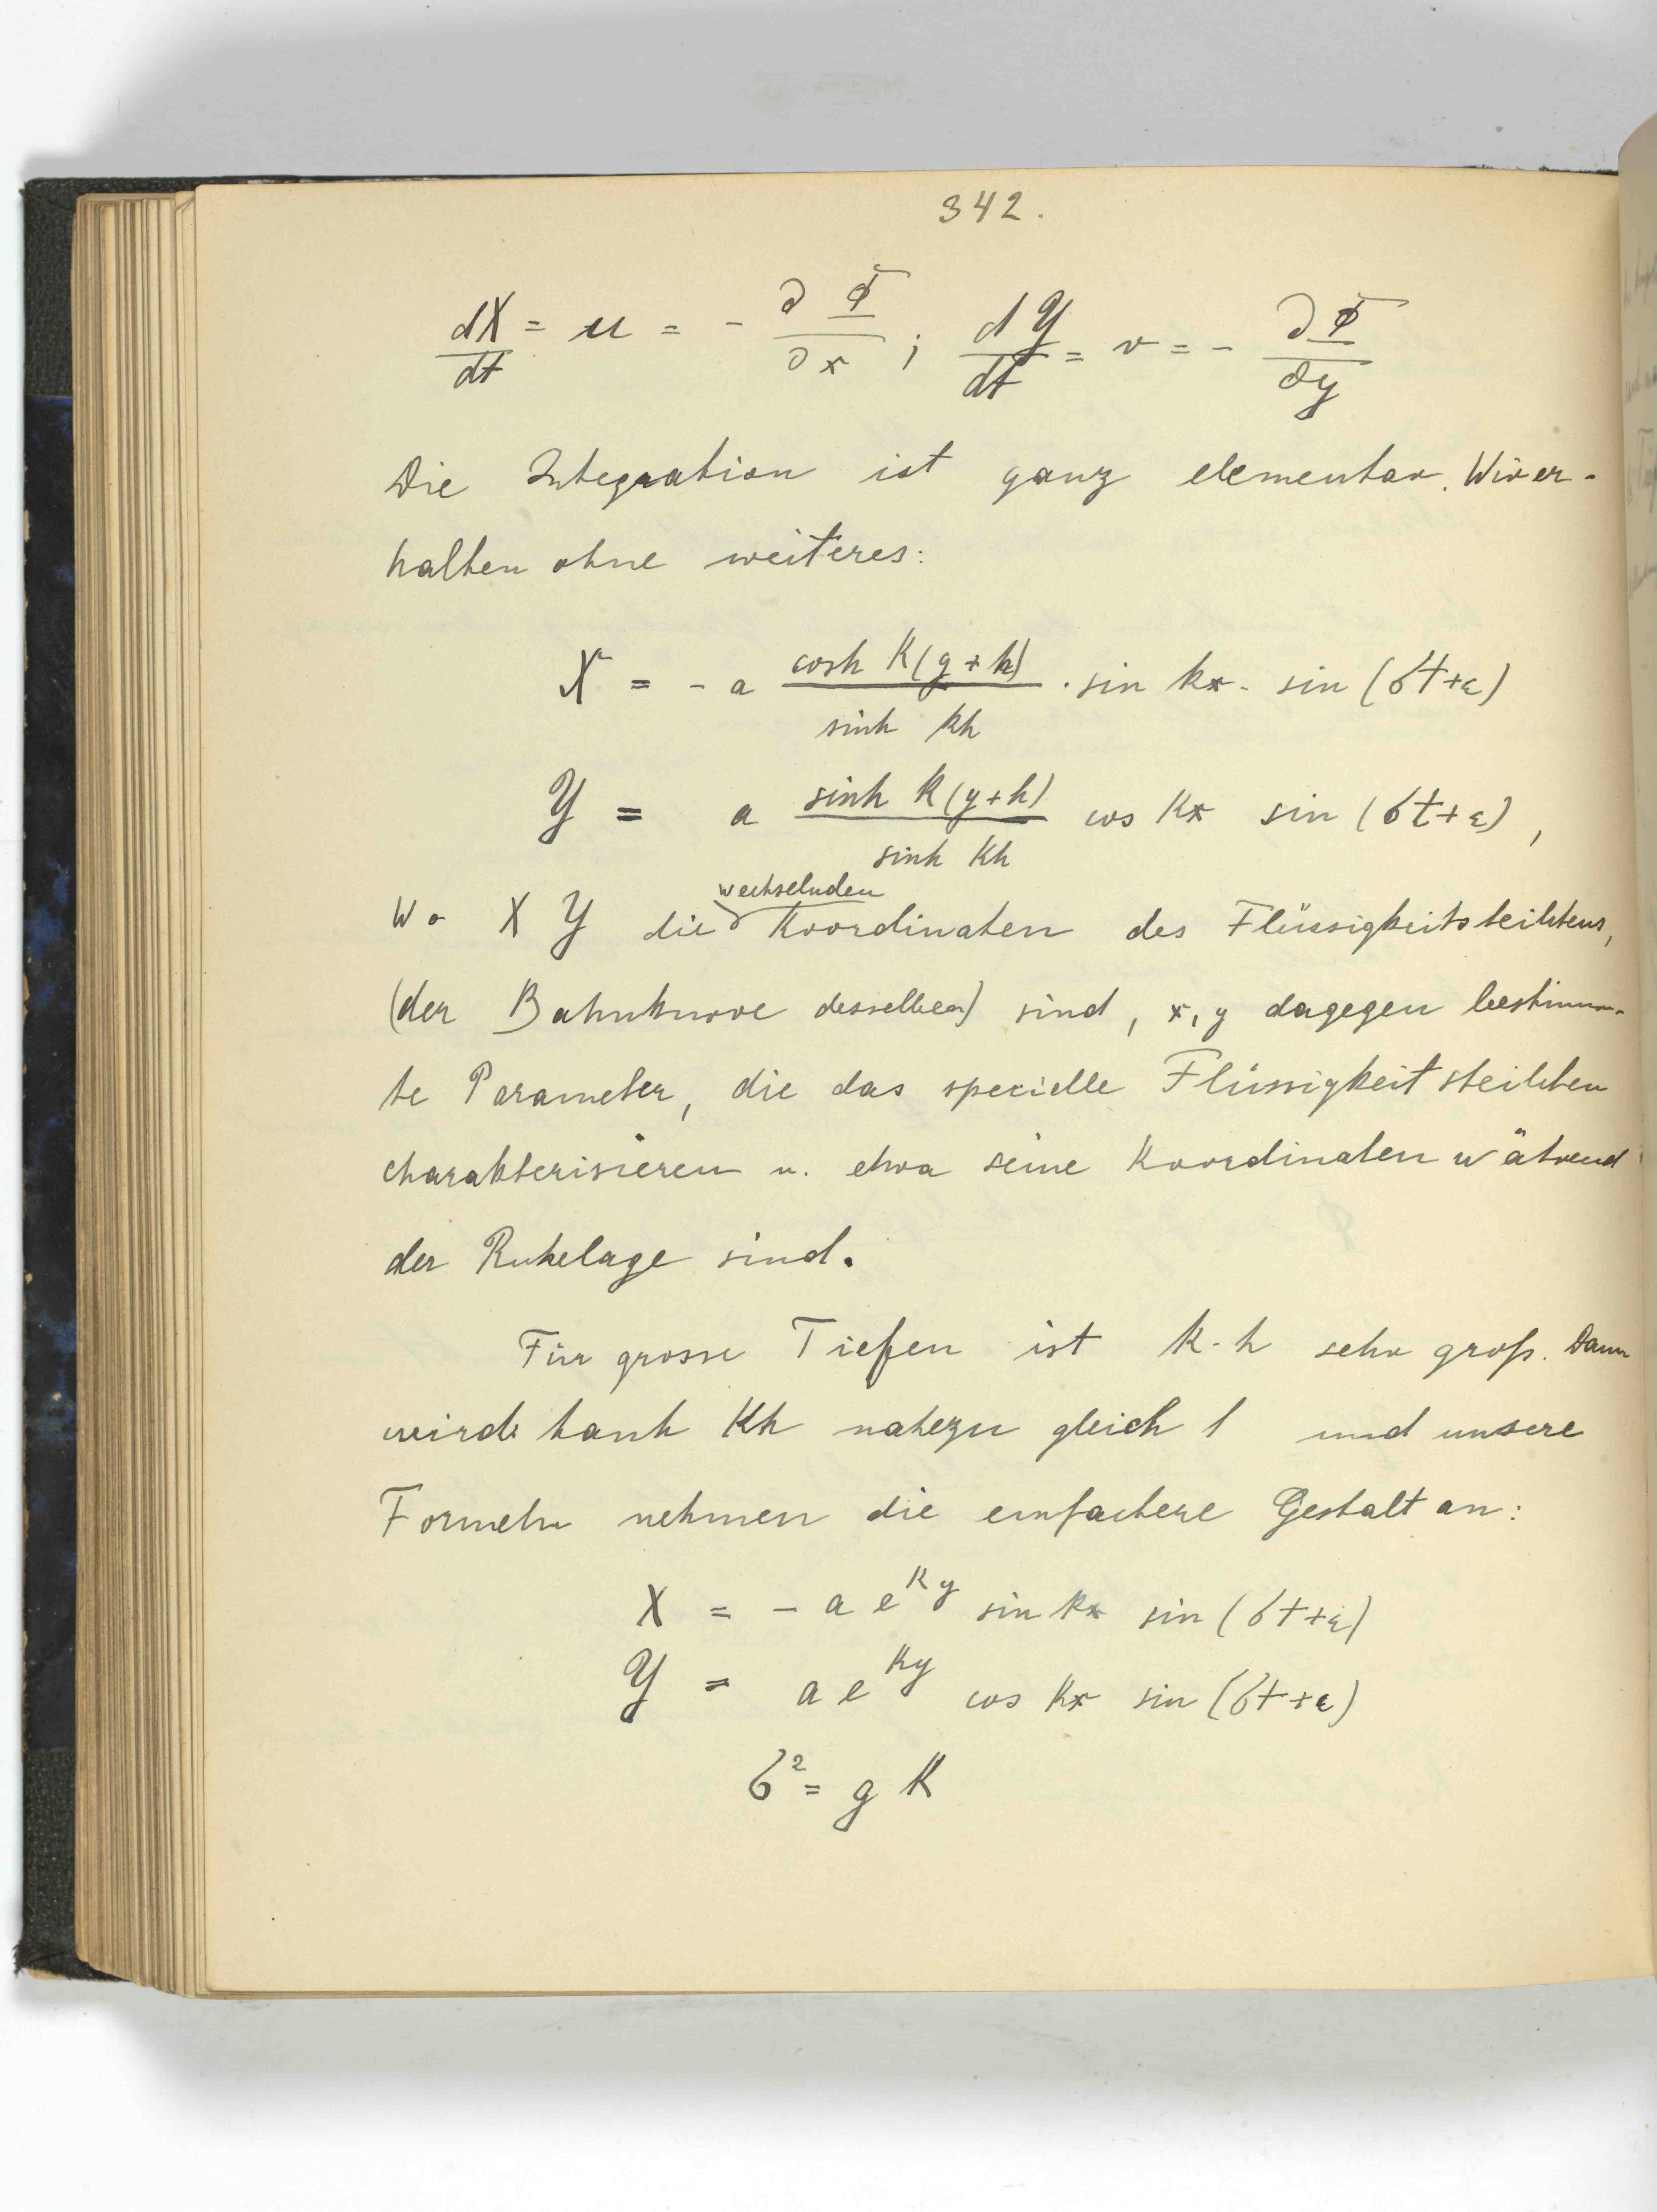 342.
dX/dt = u = - ∂Φ/∂x ; dY/dt = v = - ∂Φ/∂y
Die Integration ist ganz elementar. Wir er-
halten ohne weiteres:
X = - a cosh k(y+h)/sinh kh · sin kx · sin (σt+ε)
Y = a sinh k(y+h)/sinh kh cos kx sin (σt+ε),
wo X Y die wechselnden Koordinaten des Flüssigkeitsteilchens,
(der Bahnkurve desselben) sind, x, y dagegen bestimm-
te Parameter, die das specielle Flüssigkeitsteilchen
charakterisieren u. etwa seine Koordinaten während
der Ruhelage sind.
Für grosse Tiefen ist k·h sehr groß. Dann
wird tanh kh nahezu gleich 1 und unsere
Formeln nehmen die einfachere Gestalt an:
X = - a e^{ky} sin kx sin (σt+ε)
Y = a e^{ky} cos kx sin (σt+ε)
σ² = g k